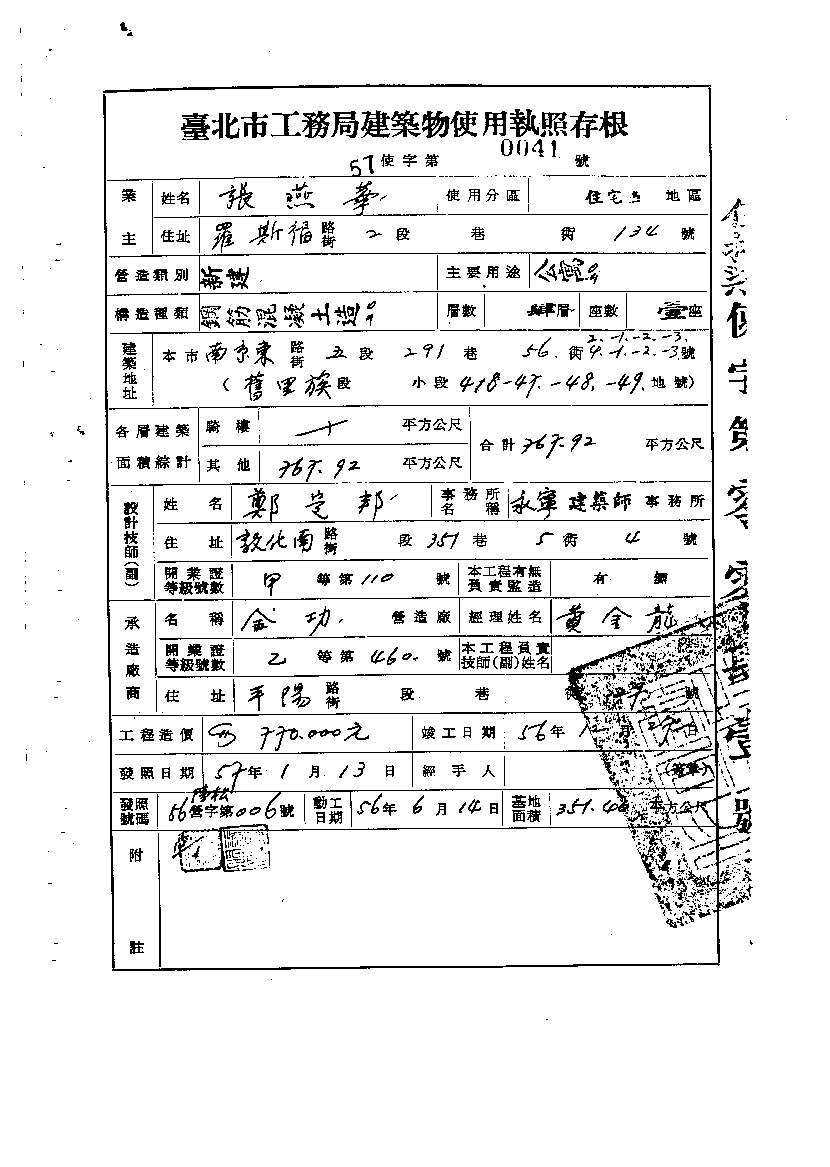 臺北市工務局建築物使用執照存根
57使字第 0041 號
業主 姓名 張燕華 使用分區 住宅 地區
住址 羅斯福路街 2段 巷 街 134 號
營造類別 新建 主要用途 公寓
構造種類 鋼筋混凝土造 層數 肆層 座數 壹座
建築地址 本市南京東路街 五段 291巷 56.街 2.-1.-2.-3. 4.-1.-2.-3號
(舊里族段 小段 418-47.-48.-49.地號)
各層建築面積綜計 騎樓 平方公尺 合計 767.92 平方公尺
其他 767.92 平方公尺
設計技師(副) 姓名 鄭定邦 事務所名稱 永寧建築師事務所
住址 敦化南路街 段 351巷 5街 4號
開業證等級號數 甲等第110號 本工程有無負責監造 有
承造廠商 名稱 金功 營造廠 經理姓名 黃金龍
開業證等級號數 乙等第460.號 本工程負責技師(副)姓名
住址 平陽路街 段 巷 街 號
工程造價 770.000元 竣工日期 56年 月 日
發照日期 57年1月13日 經手人 (簽章)
發照號碼 56營字第006號 動工日期 56年6月14日 基地面積 351.40 平方公尺
附註
使字第零零肆壹號